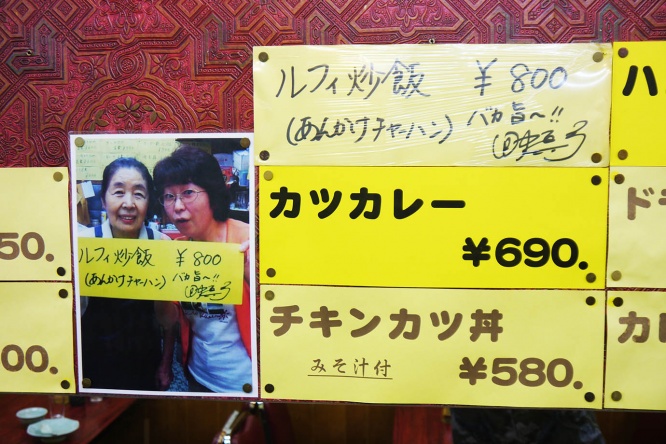 ルフィ炒飯 ￥800
(あんかけチャーハン) バカ旨〜!!
田中真弓
カツカレー
¥690.
チキンカツ丼
みそ汁付 ¥580.
50.
00.
ルフィ炒飯 ￥800
(あんかけチャーハン) バカ旨〜!!
田中真弓
ハ
ド
カレ